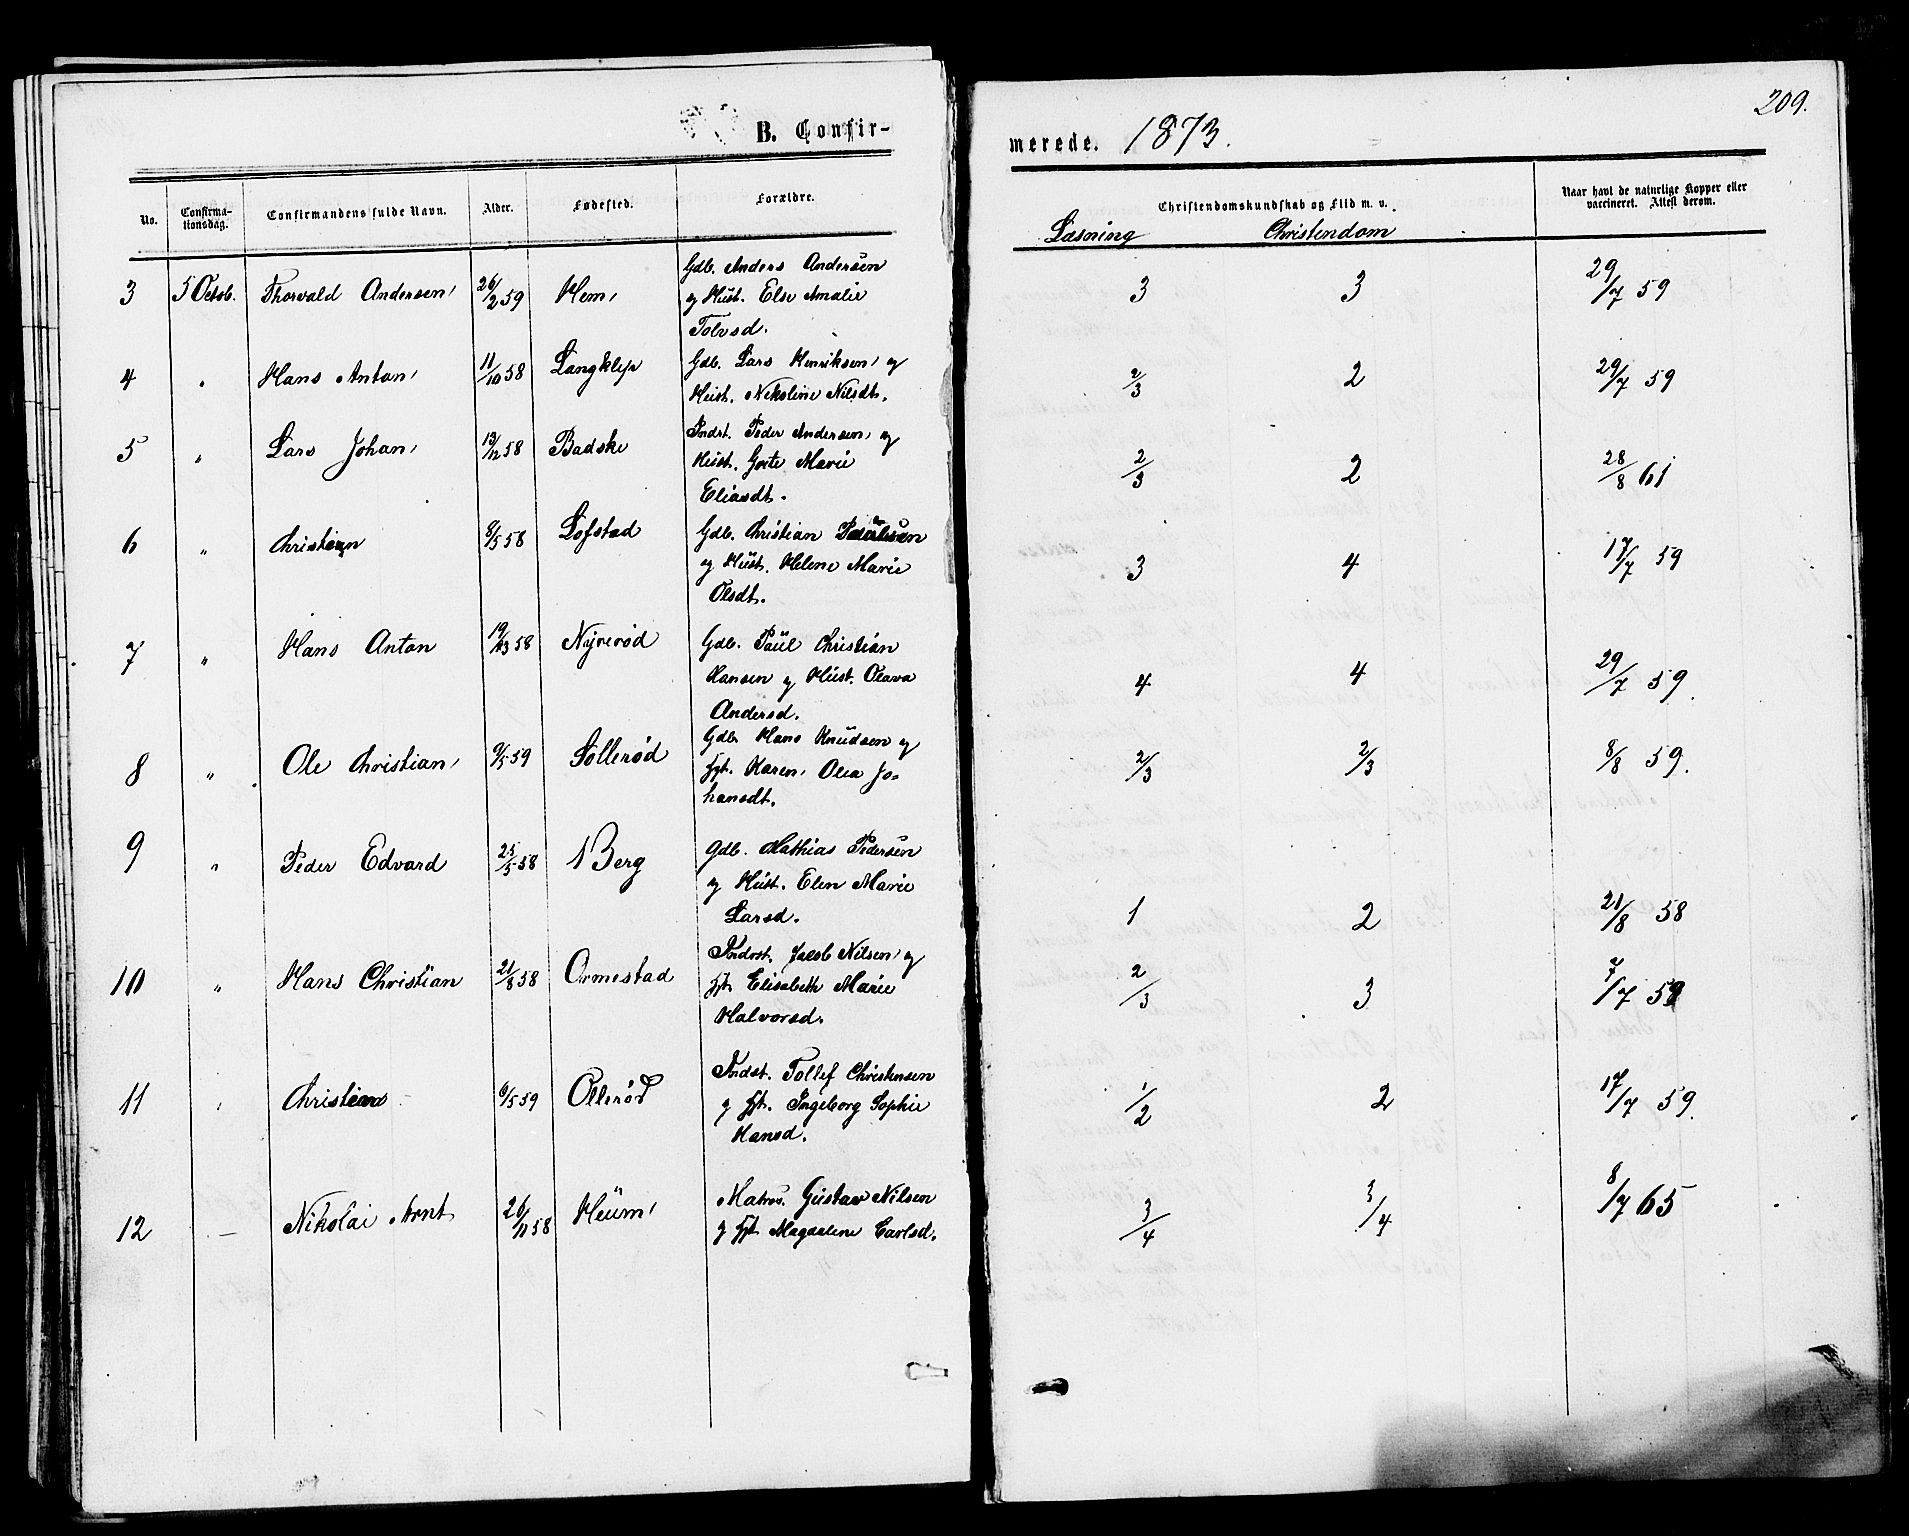 209.
B. Confir-
merede. 1873.
No.
Confirma-
tionsdag.
Confirmandens fulde Navn.
Alder.
Fødested.
Forældre.
Christendomskundskab og Flid m. v.
Læsning
Christendom
Naar havt de naturlige Kopper eller
vaccineret. Attest derom.
3 5 Octob. Thorvald Andersen 26/2 59 Hem Gdb. Anders Andersen
og Hust. Else Amalie
Tolvsd.
3 3 29/7 59
4 " Hans Anton 11/10 58 Langklep Gdb. Lars Henriksen og
Hust. Nikoline Nilsdt.
2/3 2 29/7 59
5 " Lars Johan 13/12 58 Badske Indst. Peder Andersen og
Hust. Grete Marie
Eliasdt.
2/3 2 28/8 61
6 " Christian 8/5 58 Lofstad Gdb. Christian
og Hust. Helene Marie
Olsdt.
3 4 17/7 59
7 " Hans Anton 19/ 58 Nyrerød Gdb. Paul Christian
Hansen og Hust. Olava
Andersd.
4 4 29/7 59.
8 " Ole Christian 9/5 59 Sollerød Gdb. Hans Knudsen og
Hst. Karen Olea Jo-
hansdt.
2/3 2/3 8/8 59.
9 " Peder Edvard 25/5 58 Berg Gdb. Mathias Pedersen
og Hust. Elen Marie
Larsd.
1 2 21/8 58
10 " Hans Christian 21/8 58 Ormestad Indrst. Jacob Nilsen og
Hst. Elisabeth Marie
Halvorsd.
2/3 3 7/7 59
11 " Christian 9/5 59 Ollerød Indst. Tollef Christensen
og Hst. Ingeborg Sophie
Hansd.
1/2 2 17/7 59.
12 — Nikolai Arnt 26/11 58 Heum Matros. Gustav Nilsen
og Hst. Magdalene Carlsd.
3/4 3/4 8/7 65